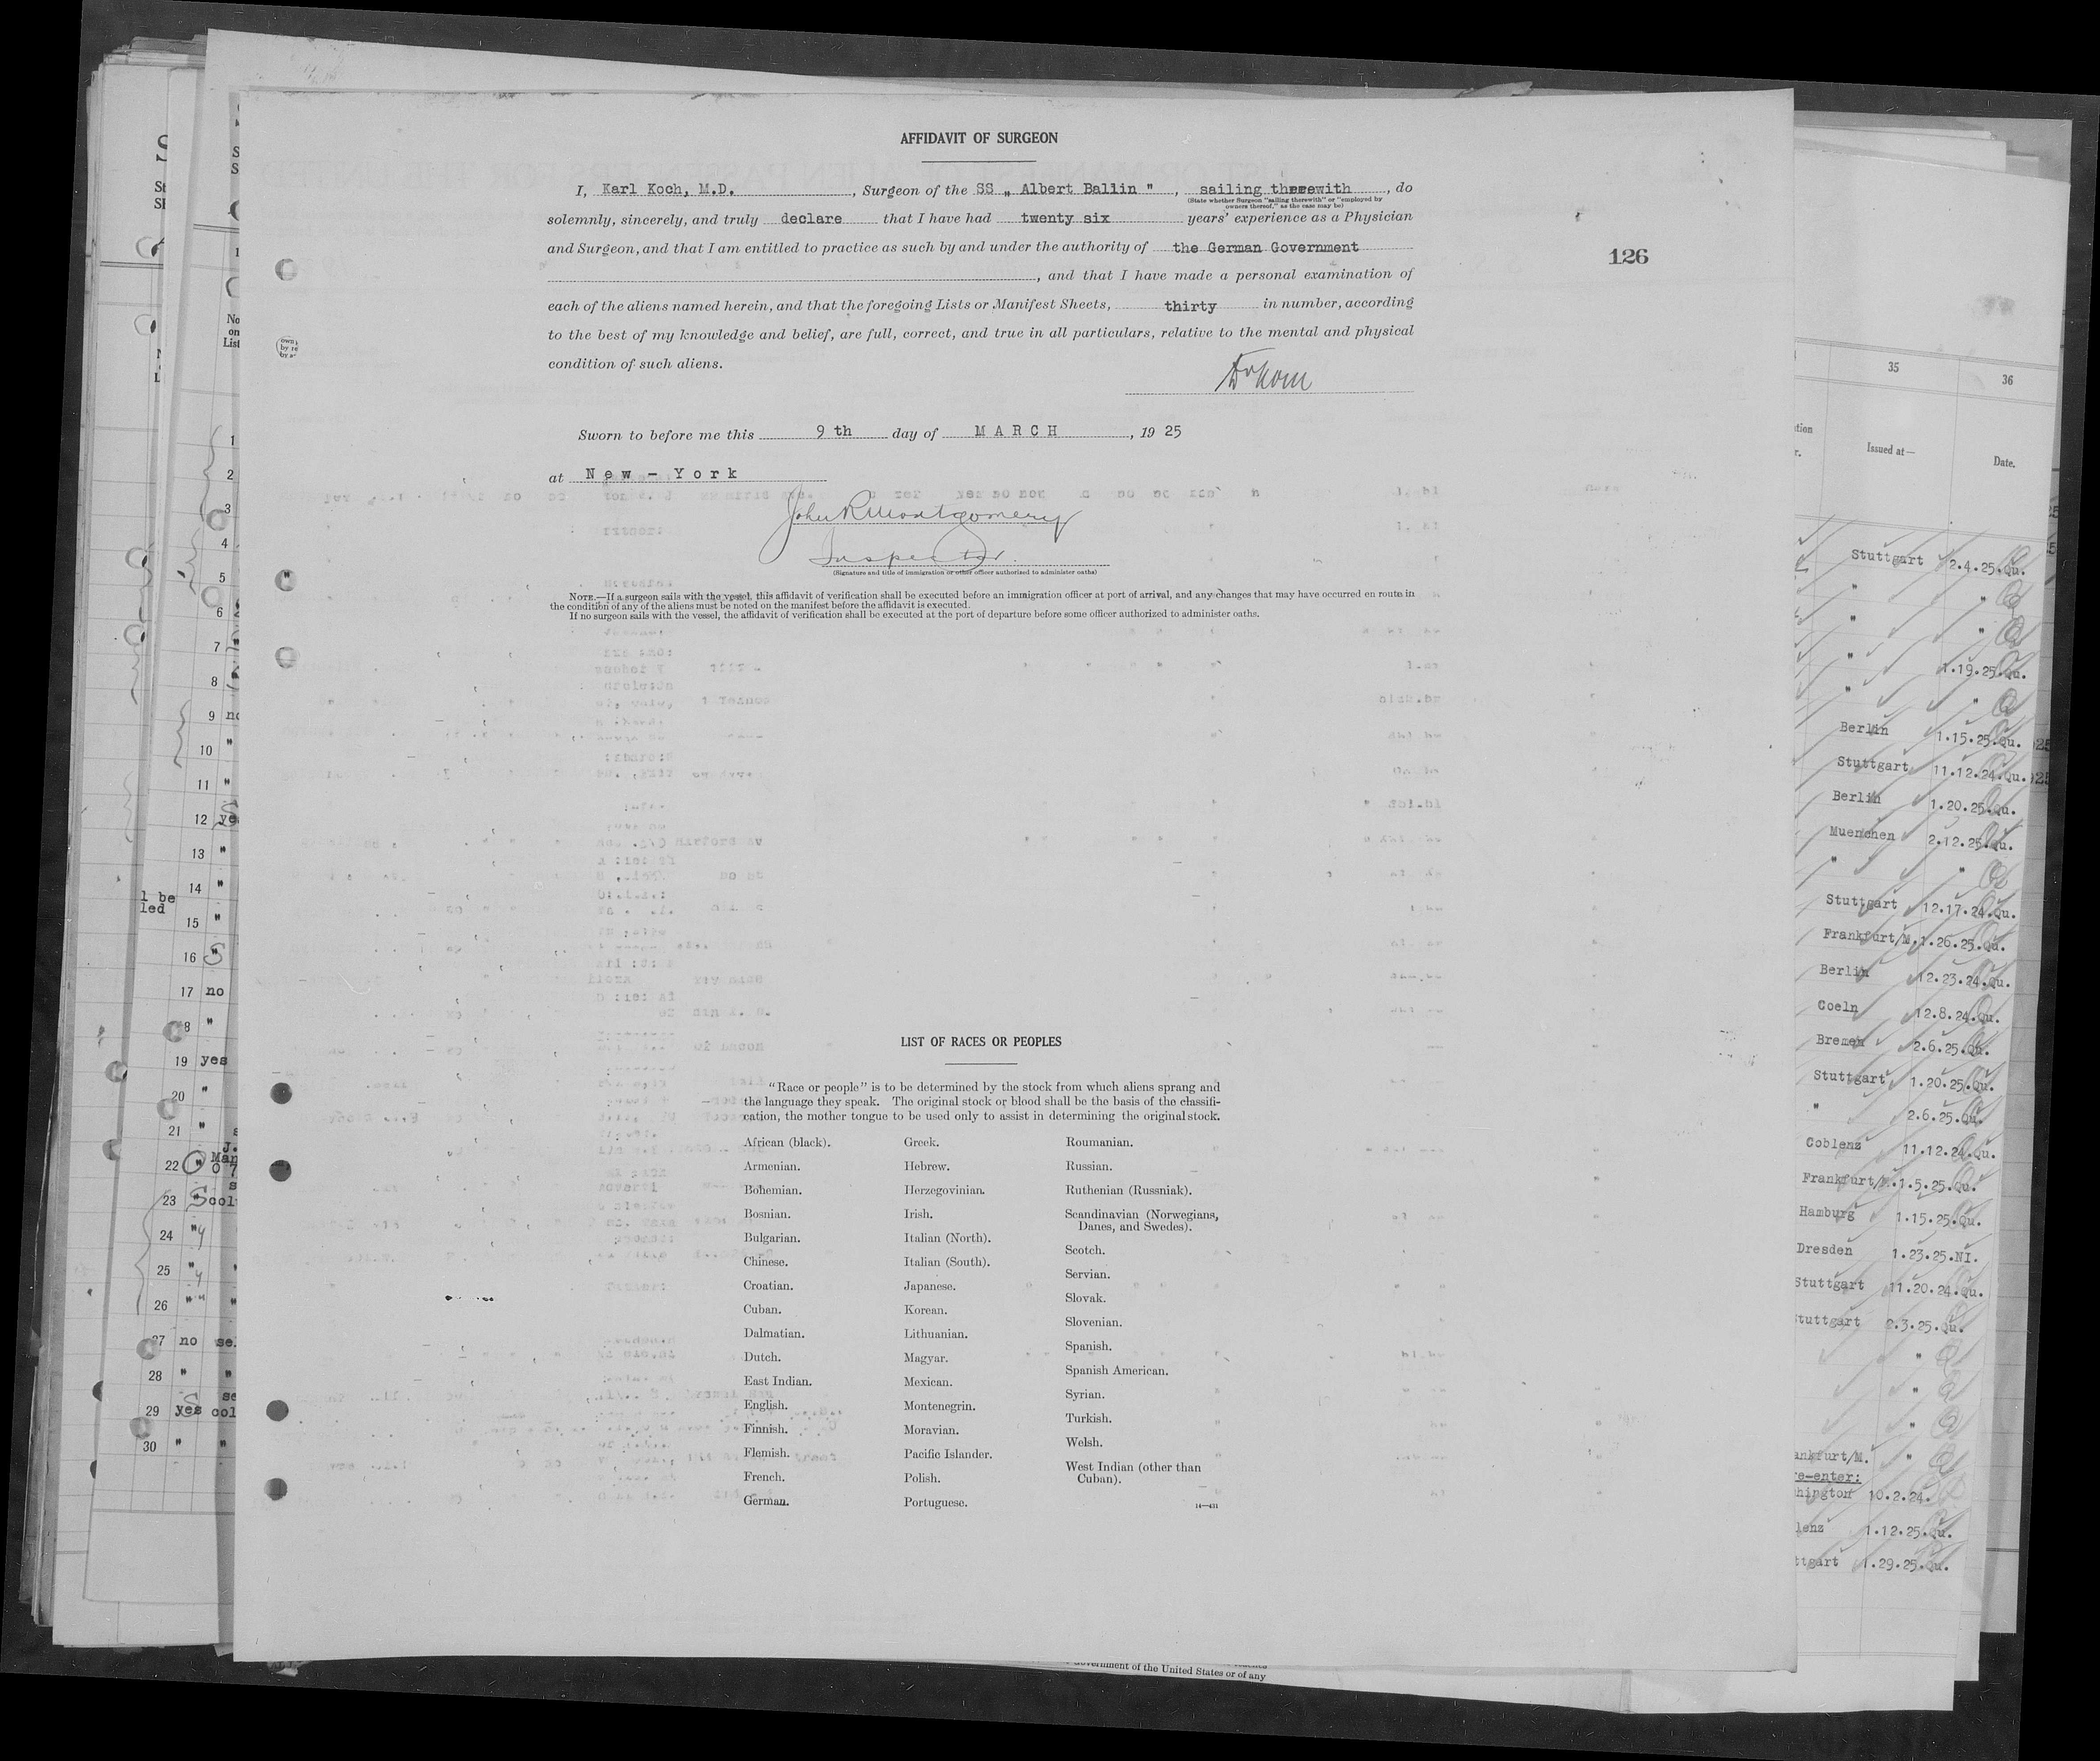 AFFIDAVIT OF SURGEON
I, Karl Koch, M.D. , Surgeon of the SS „ Albert Ballin " , sailing therewith , do
(State whether Surgeon "sailing therewith" or "employed by
owners thereof," as the case may be)
solemnly, sincerely, and truly declare that I have had twenty six years' experience as a Physician
and Surgeon, and that I am entitled to practice as such by and under the authority of the German Government
, and that I have made a personal examination of
each of the aliens named herein, and that the foregoing Lists or Manifest Sheets, thirty in number, according
to the best of my knowledge and belief, are full, correct, and true in all particulars, relative to the mental and physical
condition of such aliens.
126
Sworn to before me this 9 th day of MARCH , 19 25
at New - York
John R Montgomery
Inspector
(Signature and title of immigration or other officer authorized to administer oaths)
NOTE.—If a surgeon sails with the vessel, this affidavit of verification shall be executed before an immigration officer at port of arrival, and any changes that may have occurred en route in
the condition of any of the aliens must be noted on the manifest before the affidavit is executed.
If no surgeon sails with the vessel, the affidavit of verification shall be executed at the port of departure before some officer authorized to administer oaths.
LIST OF RACES OR PEOPLES
"Race or people" is to be determined by the stock from which aliens sprang and
the language they speak. The original stock or blood shall be the basis of the classifi-
cation, the mother tongue to be used only to assist in determining the original stock.
African (black).
Armenian.
Bohemian.
Bosnian.
Bulgarian.
Chinese.
Croatian.
Cuban.
Dalmatian.
Dutch.
East Indian.
English.
Finnish.
Flemish.
French.
German.
Greek.
Hebrew.
Herzegovinian.
Irish.
Italian (North).
Italian (South).
Japanese.
Korean.
Lithuanian.
Magyar.
Mexican.
Montenegrin.
Moravian.
Pacific Islander.
Polish.
Portuguese.
Roumanian.
Russian.
Ruthenian (Russniak).
Scandinavian (Norwegians,
Danes, and Swedes).
Scotch.
Servian.
Slovak.
Slovenian.
Spanish.
Spanish American.
Syrian.
Turkish.
Welsh.
West Indian (other than
Cuban).
14—431
35 36
Issued at— Date.
Stuttgart 2.4.25.Qu.
" "
" "
" 1.19.25.Qu.
" "
Berlin 1.15.25.Qu.
Stuttgart 11.12.24.Qu.
Berlin 1.20.25.Qu.
Muenchen 2.12.25.Qu.
" "
Stuttgart 12.17.24.Qu.
Frankfurt/M. 1.26.25.Qu.
Berlin 12.23.24.Qu.
Coeln 12.8.24.Qu.
Bremen 2.6.25.Qu.
Stuttgart 1.20.25.Qu.
" 2.6.25.Qu.
Coblenz 11.12.24.Qu.
Frankfurt/M. 1.5.25.Qu.
Hamburg 1.15.25.Qu.
Dresden 1.23.25.NI.
Stuttgart 11.20.24.Qu.
tuttgart 2.3.25.Qu.
"
"
"
ankfurt/M. "
re-enter:
hington 10.2.24.
lenz 1.12.25.Qu.
ttgart 1.29.25.Qu.
No
on
List
1
2
3
4
5
6
7
8
9 no
10 "
11 "
12 ye
13 "
14 "
15 "
16 "
17 no
18 "
19 yes
20 "
21 "
22 "
23 " col
24 "
25 "
26 "
27 no se
28 " "
29 yes col
30 " "
l be
led
overnment of the United States or of any